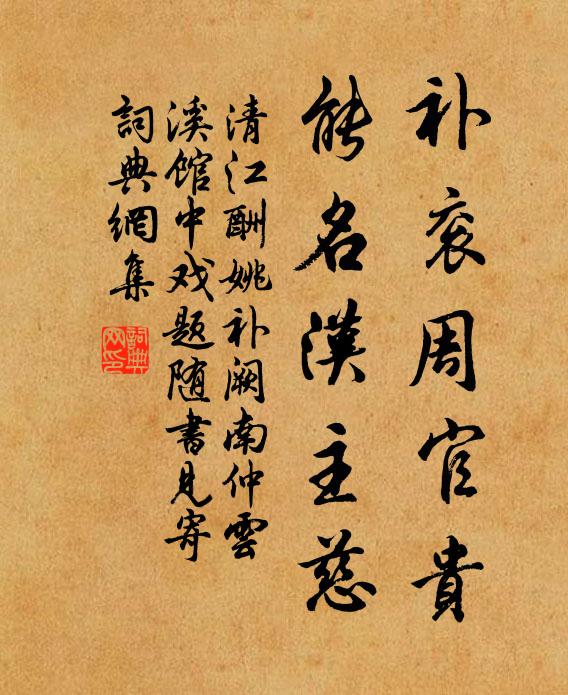 补衮周官貴
能名漢主慈
清江酬姚补阙南仲雲
溪馆中戏题随書見寄
詞典網集
詞典网印